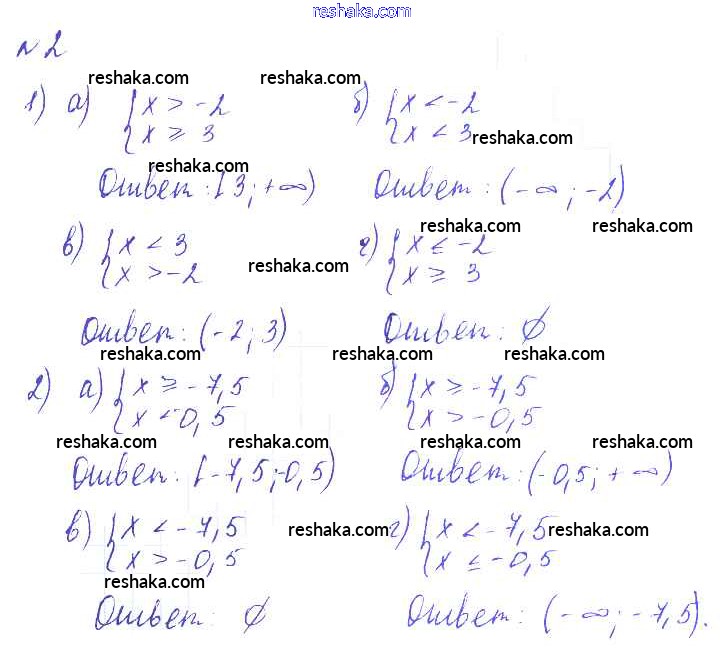 reshaka.com
№2
reshaka.com reshaka.com
1) а) { x > -2 б) { x < -2
{ x ≥ 3 { x < 3 reshaka.com
reshaka.com
Ответ: [3; +∞) Ответ: (-∞; -2)
reshaka.com reshaka.com
в) { x < 3 г) { x ≤ -2
{ x > -2 { x ≥ 3
reshaka.com
Ответ: (-2; 3) Ответ: ∅
reshaka.com reshaka.com reshaka.com
2) а) { x ≥ -7,5 б) { x ≥ -7,5
{ x < -0,5 { x > -0,5
reshaka.com reshaka.com reshaka.com
Ответ: [-7,5; -0,5) Ответ: (-0,5; +∞)
в) { x < -7,5 г) { x < -7,5
{ x > -0,5 { x ≤ -0,5
reshaka.com reshaka.com
reshaka.com
Ответ: ∅ Ответ: (-∞; -7,5).
reshaka.com